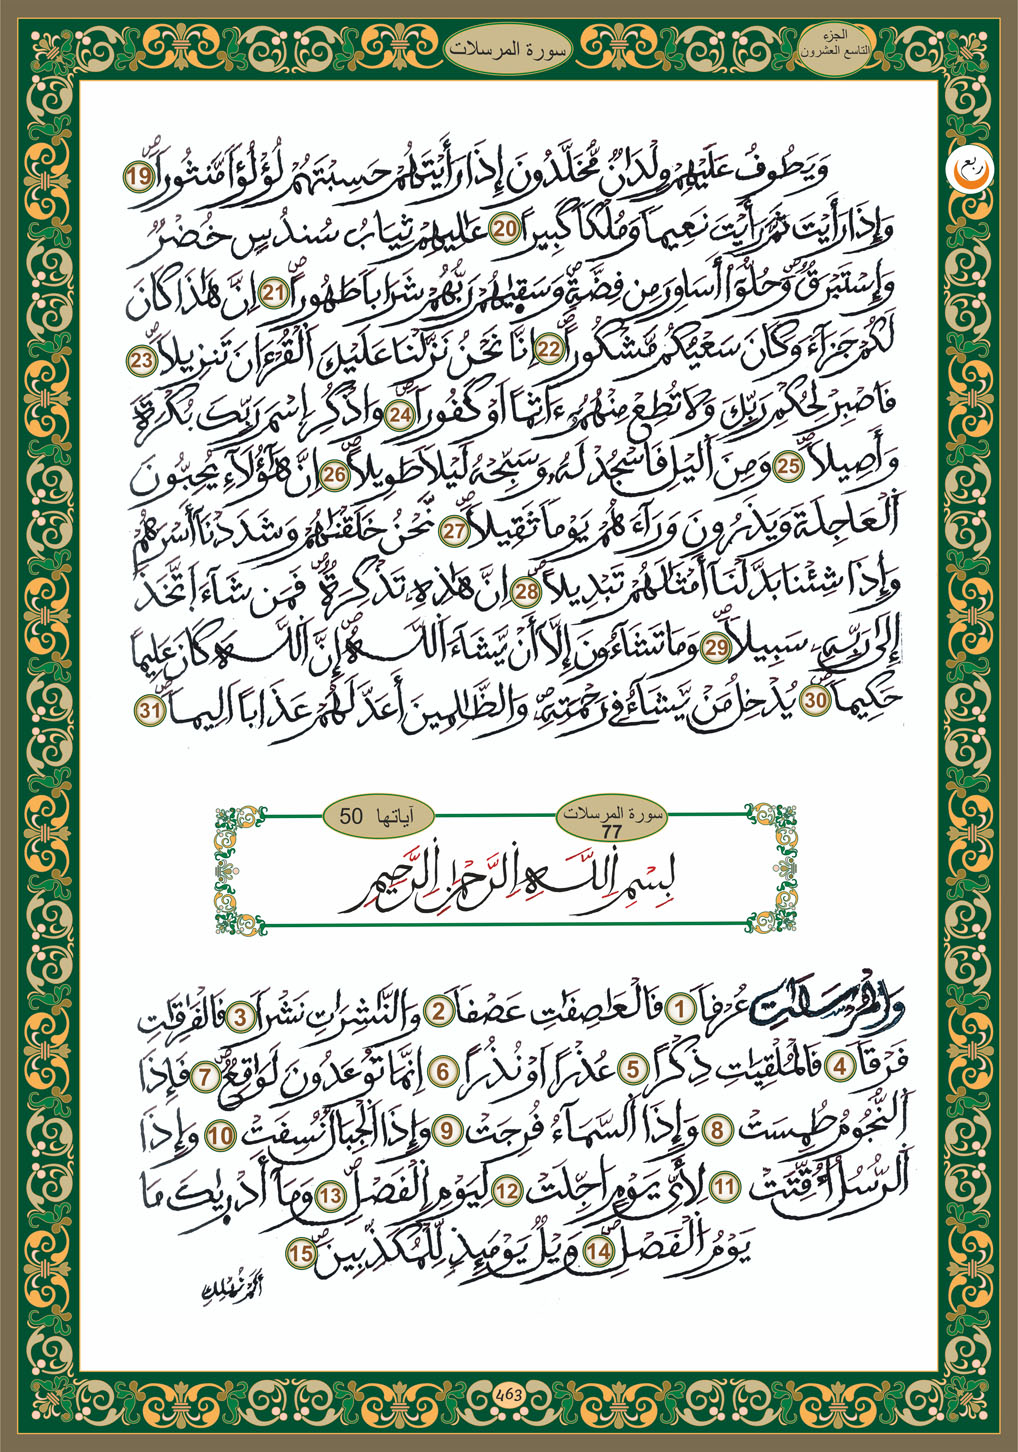 سورة المرسلات
الجزء
التاسع العشرون
ربع
وَيَطُوفُ عَلَيْهِمْ وِلْدَانٌ مُّخَلَّدُونَ إِذَا رَأَيْتَهُمْ حَسِبْتَهُمْ لُؤْلُؤاً مَّنثُوراً 19
وَإِذَا رَأَيْتَ ثَمَّ رَأَيْتَ نَعِيماً وَمُلْكاً كَبِيراً 20 عَالِيهِمْ ثِيَابُ سُندُسٍ خُضْرٌ
وَإِسْتَبْرَقٌ وَحُلُّوٓاْ أَسَاوِرَ مِن فِضَّةٍ وَسَقَيٰهُمْ رَبُّهُمْ شَرَاباً طَهُوراً 21 إِنَّ هَٰذَا كَانَ
لَكُمْ جَزَآءً وَكَانَ سَعْيُكُم مَّشْكُوراً 22 إِنَّا نَحْنُ نَزَّلْنَا عَلَيْكَ اَلْقُرْءَانَ تَنزِيلاً 23
فَاصْبِرْ لِحُكْمِ رَبِّكَ وَلَا تُطِعْ مِنْهُمُۥٓ ءَاثِماً اَوْ كَفُوراً 24 وَاذْكُرِ اِسْمَ رَبِّكَ بُكْرَةً
وَأَصِيلاً 25 وَمِنَ اَلَيْلِ فَاسْجُدْ لَهُۥ وَسَبِّحْهُ لَيْلاً طَوِيلاً 26 إِنَّ هَٰٓؤُلَآءِ يُحِبُّونَ
اَلْعَاجِلَةَ وَيَذَرُونَ وَرَآءَهُمْ يَوْماً ثَقِيلاً 27 نَّحْنُ خَلَقْنَٰهُمْ وَشَدَدْنَآ أَسْرَهُمْ
وَإِذَا شِئْنَا بَدَّلْنَآ أَمْثَٰلَهُمْ تَبْدِيلاً 28 اِنَّ هَٰذِهِۦ تَذْكِرَةٌ فَمَن شَآءَ اَتَّخَذَ
إِلَىٰ رَبِّهِۦ سَبِيلاً 29 وَمَا تَشَآءُونَ إِلَّآ أَنْ يَّشَآءَ اَللَّهُ إِنَّ اَللَّهَ كَانَ عَلِيماً
حَكِيماً 30 يُدْخِلُ مَنْ يَّشَآءُ فِي رَحْمَتِهِۦ وَالظَّٰلِمِينَ أَعَدَّ لَهُمْ عَذَاباً اَلِيماً 31
سورة المرسلات
77
آياتها 50
بِسْمِ اِللَّهِ اِلرَّحْمَٰنِ اِلرَّحِيمِ
وَالْمُرْسَلَٰتِ عُرْفاً 1 فَالْعَٰصِفَٰتِ عَصْفاً 2 وَالنَّٰشِرَٰتِ نَشْراً 3 فَالْفَٰرِقَٰتِ
فَرْقاً 4 فَالْمُلْقِيَٰتِ ذِكْراً 5 عُذْراً اَوْ نُذُراً 6 اِنَّمَا تُوعَدُونَ لَوَٰقِعٌ 7 فَإِذَا
اَلنُّجُومُ طُمِسَتْ 8 وَإِذَا اَلسَّمَآءُ فُرِجَتْ 9 وَإِذَا اَلْجِبَالُ نُسِفَتْ 10 وَإِذَا
اَلرُّسُلُ أُقِّتَتْ 11 لِأَيِّ يَوْمٍ اجِّلَتْ 12 لِيَوْمِ اِلْفَصْلِ 13 وَمَآ أَدْرَيٰكَ مَا
يَوْمُ اُلْفَصْلِ 14 وَيْلٌ يَوْمَئِذٍ لِّلْمُكَذِّبِينَ 15
463